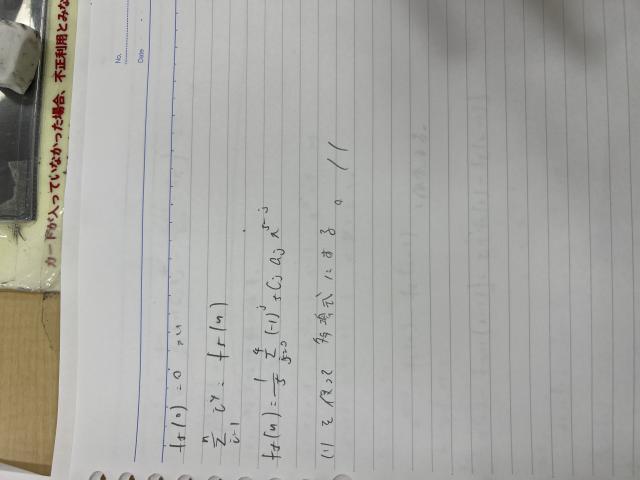 カードが入っていなかった場合、不正利用とみな
No.
Date
f₅(0) = 0 より
\sum_{i=1}^{n} i^4 = f_5(n)
f_5(n) = \frac{1}{5} \sum_{j=0}^{4} (-1)^j {}_5C_j a_j n^{5-j}
(1) を使って 多項式 にする。 //